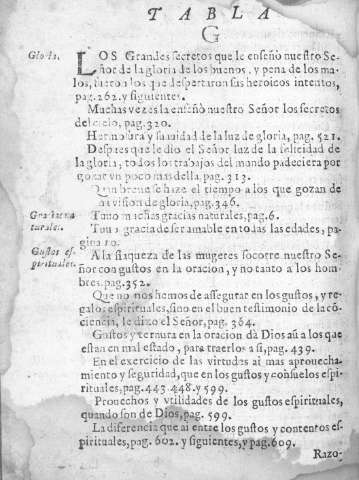 TABLA
G
Gloria.
LOS Grandes secretos que le enseñò nuestro Se-
ñor de la gloria de los buenos, y pena de los ma-
los, fueron los que despertaron sus heroicos intentos,
pag. 262. y siguientes.
Muchas vezes la enseñò nuestro Señor los secretos
del cielo, pag. 320.
Hermosura y suauidad de la luz de gloria, pag. 521.
Despues que le dio el Señor luz de la felicidad de
la gloria, todos los trabajos del mundo padeciera por
gozar vn poco mas della, pag. 313.
Quan breue se haze el tiempo a los que gozan de
la vision de gloria, pag. 346.
Gracias na
turales.
Tuuo muchas gracias naturales, pag. 6.
Tuuo gracia de ser amable en todas las edades, pa-
gina 10.
Gustos es-
pirituales.
A la flaqueza de las mugeres socorre nuestro Se-
ñor con gustos en la oracion, y no tanto a los hom-
bres, pag. 352.
Que no nos hemos de assegurar en los gustos, y re-
galos espirituales, sino en el buen testimonio de la cõ-
ciencia, le dixo el Señor, pag. 364.
Gustos y ternura en la oracion dà Dios aũ a los que
estan en mal estado, para traerlos a si, pag. 439.
En el exercicio de las virtudes ai mas aprouecha-
miento y seguridad, que en los gustos y consuelos espi-
rituales, pag. 443 448. y 599.
Prouechos y vtilidades de los gustos espirituales,
quando son de Dios, pag. 599.
La diferencia que ai entre los gustos y contentos es-
pirituales, pag. 602. y siguientes, y pag. 609.
Razo-